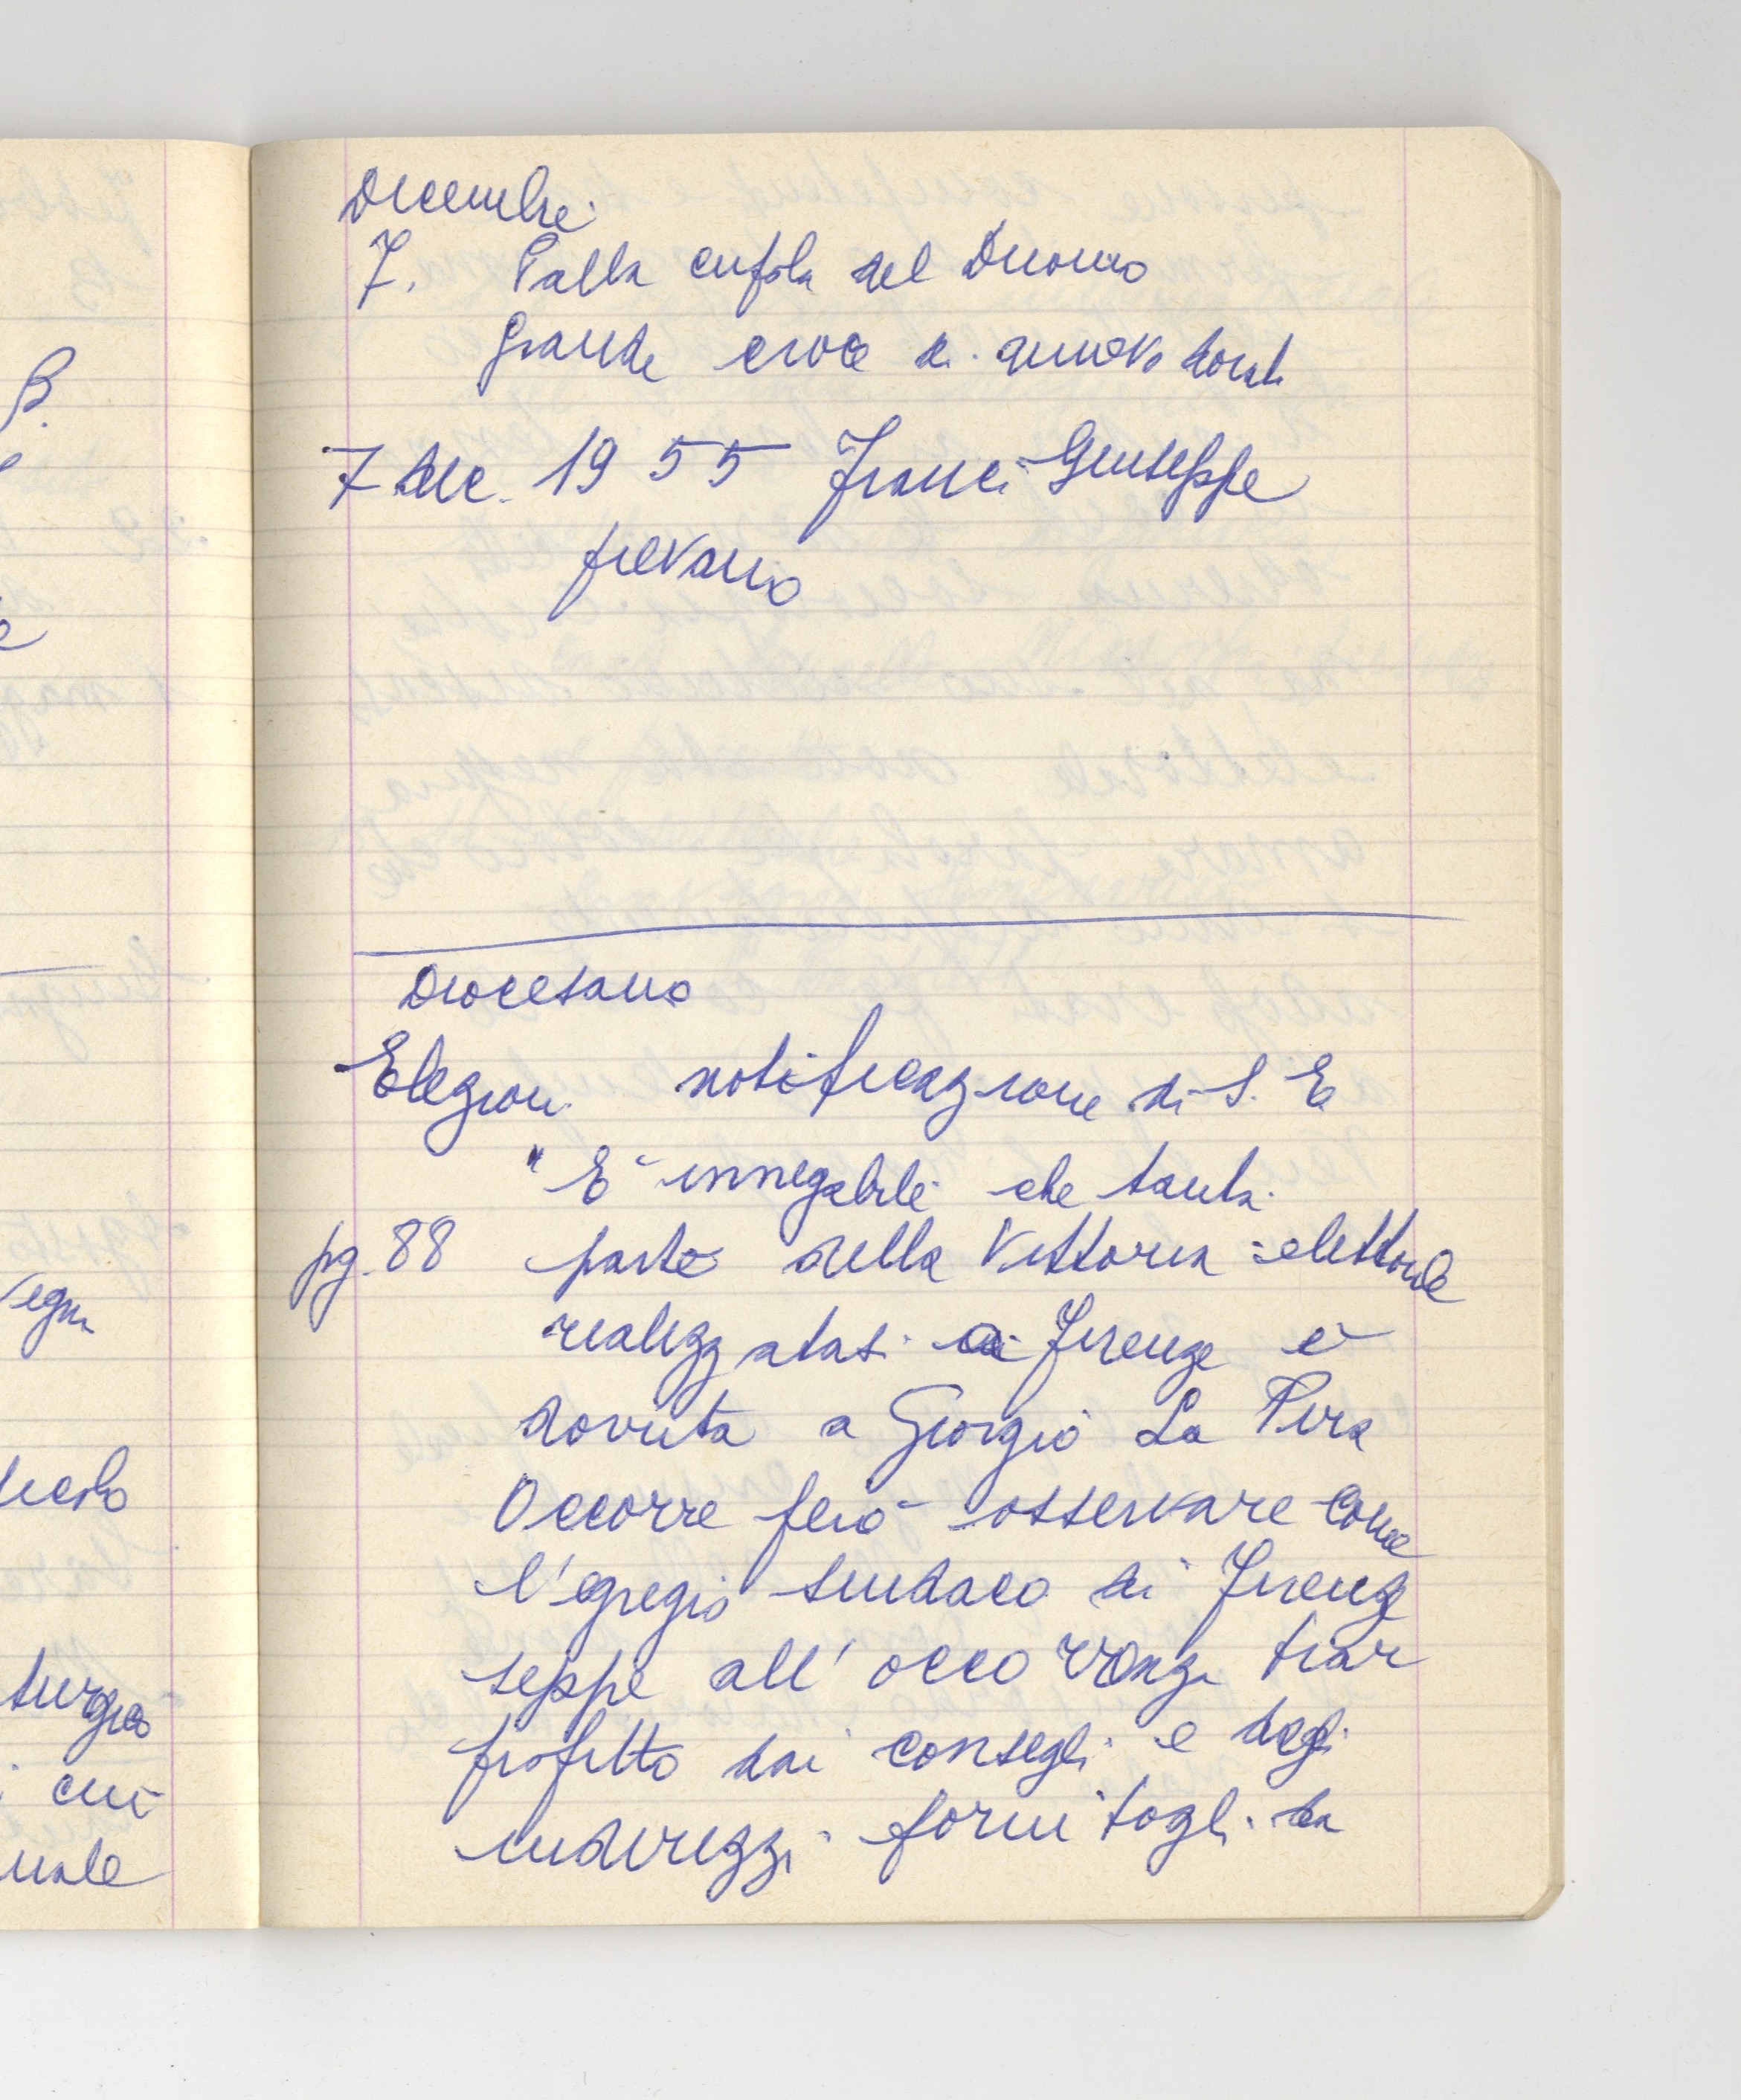 Dicembre
7. Palla cupola del Duomo
grande croce di nuovo dorati
7 dic. 1955 Franci Giuseppe
pievano
Diocesano
Elezioni notificazione di S. E
"E' innegabile che tanta
pg. 88 parte della Vittoria elettorale
realizzatasi a Firenze è
dovuta a Giorgio La Pira
Occorre però osservare come
l'egregio sindaco di Firenze
seppe all'occorrenza trar
profitto dai consigli e degli
indirizzi fornitogli da
B.
e
vegni
surgico
i cui
uale